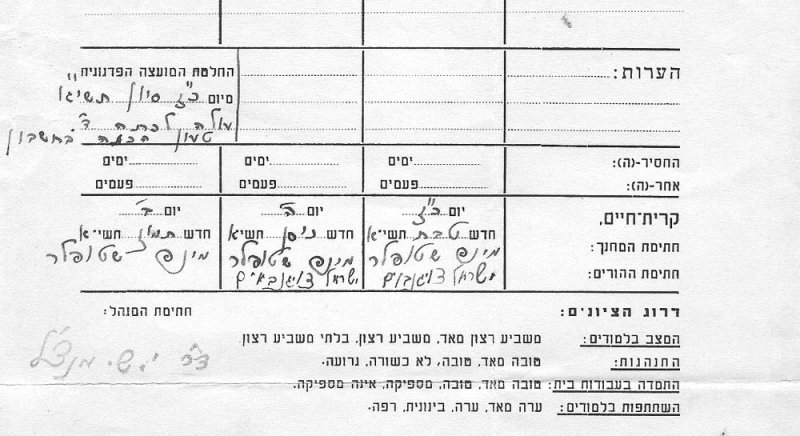 הערות:
החלטת המועצה הפדגוגית
מיום כ"ז סיון תשי"א
עולה לכתה ד'
טעון הכאה בחשבון
החסיר-(ה): ימים ימים ימים
אחר-(ה): פעמים פעמים פעמים
קרית-חיים, יום כ"ז יום ה' יום ב'
חדש טבת תשי"א חדש ניסן תשי"א חדש תמוז תשי"א
חתימת המחנך: מינס שטופלר מינס שטופלר מינס שטופלר
חתימת ההורים: ישראל ישראל
דרוג הציונים: חתימת המנהל:
המצב בלמודים: משביע רצון מאד, משביע רצון, בלתי משביע רצון
התנהגות: טובה מאד, טובה, לא כשורה, גרועה.
ד"ר י. ש. מנצ'ל
התמדה בעבודות בית: טובה מאד, טובה, מספיקה, אינה מספיקה.
השתתפות בלמודים: ערה מאד, ערה, בינונית, רפה.